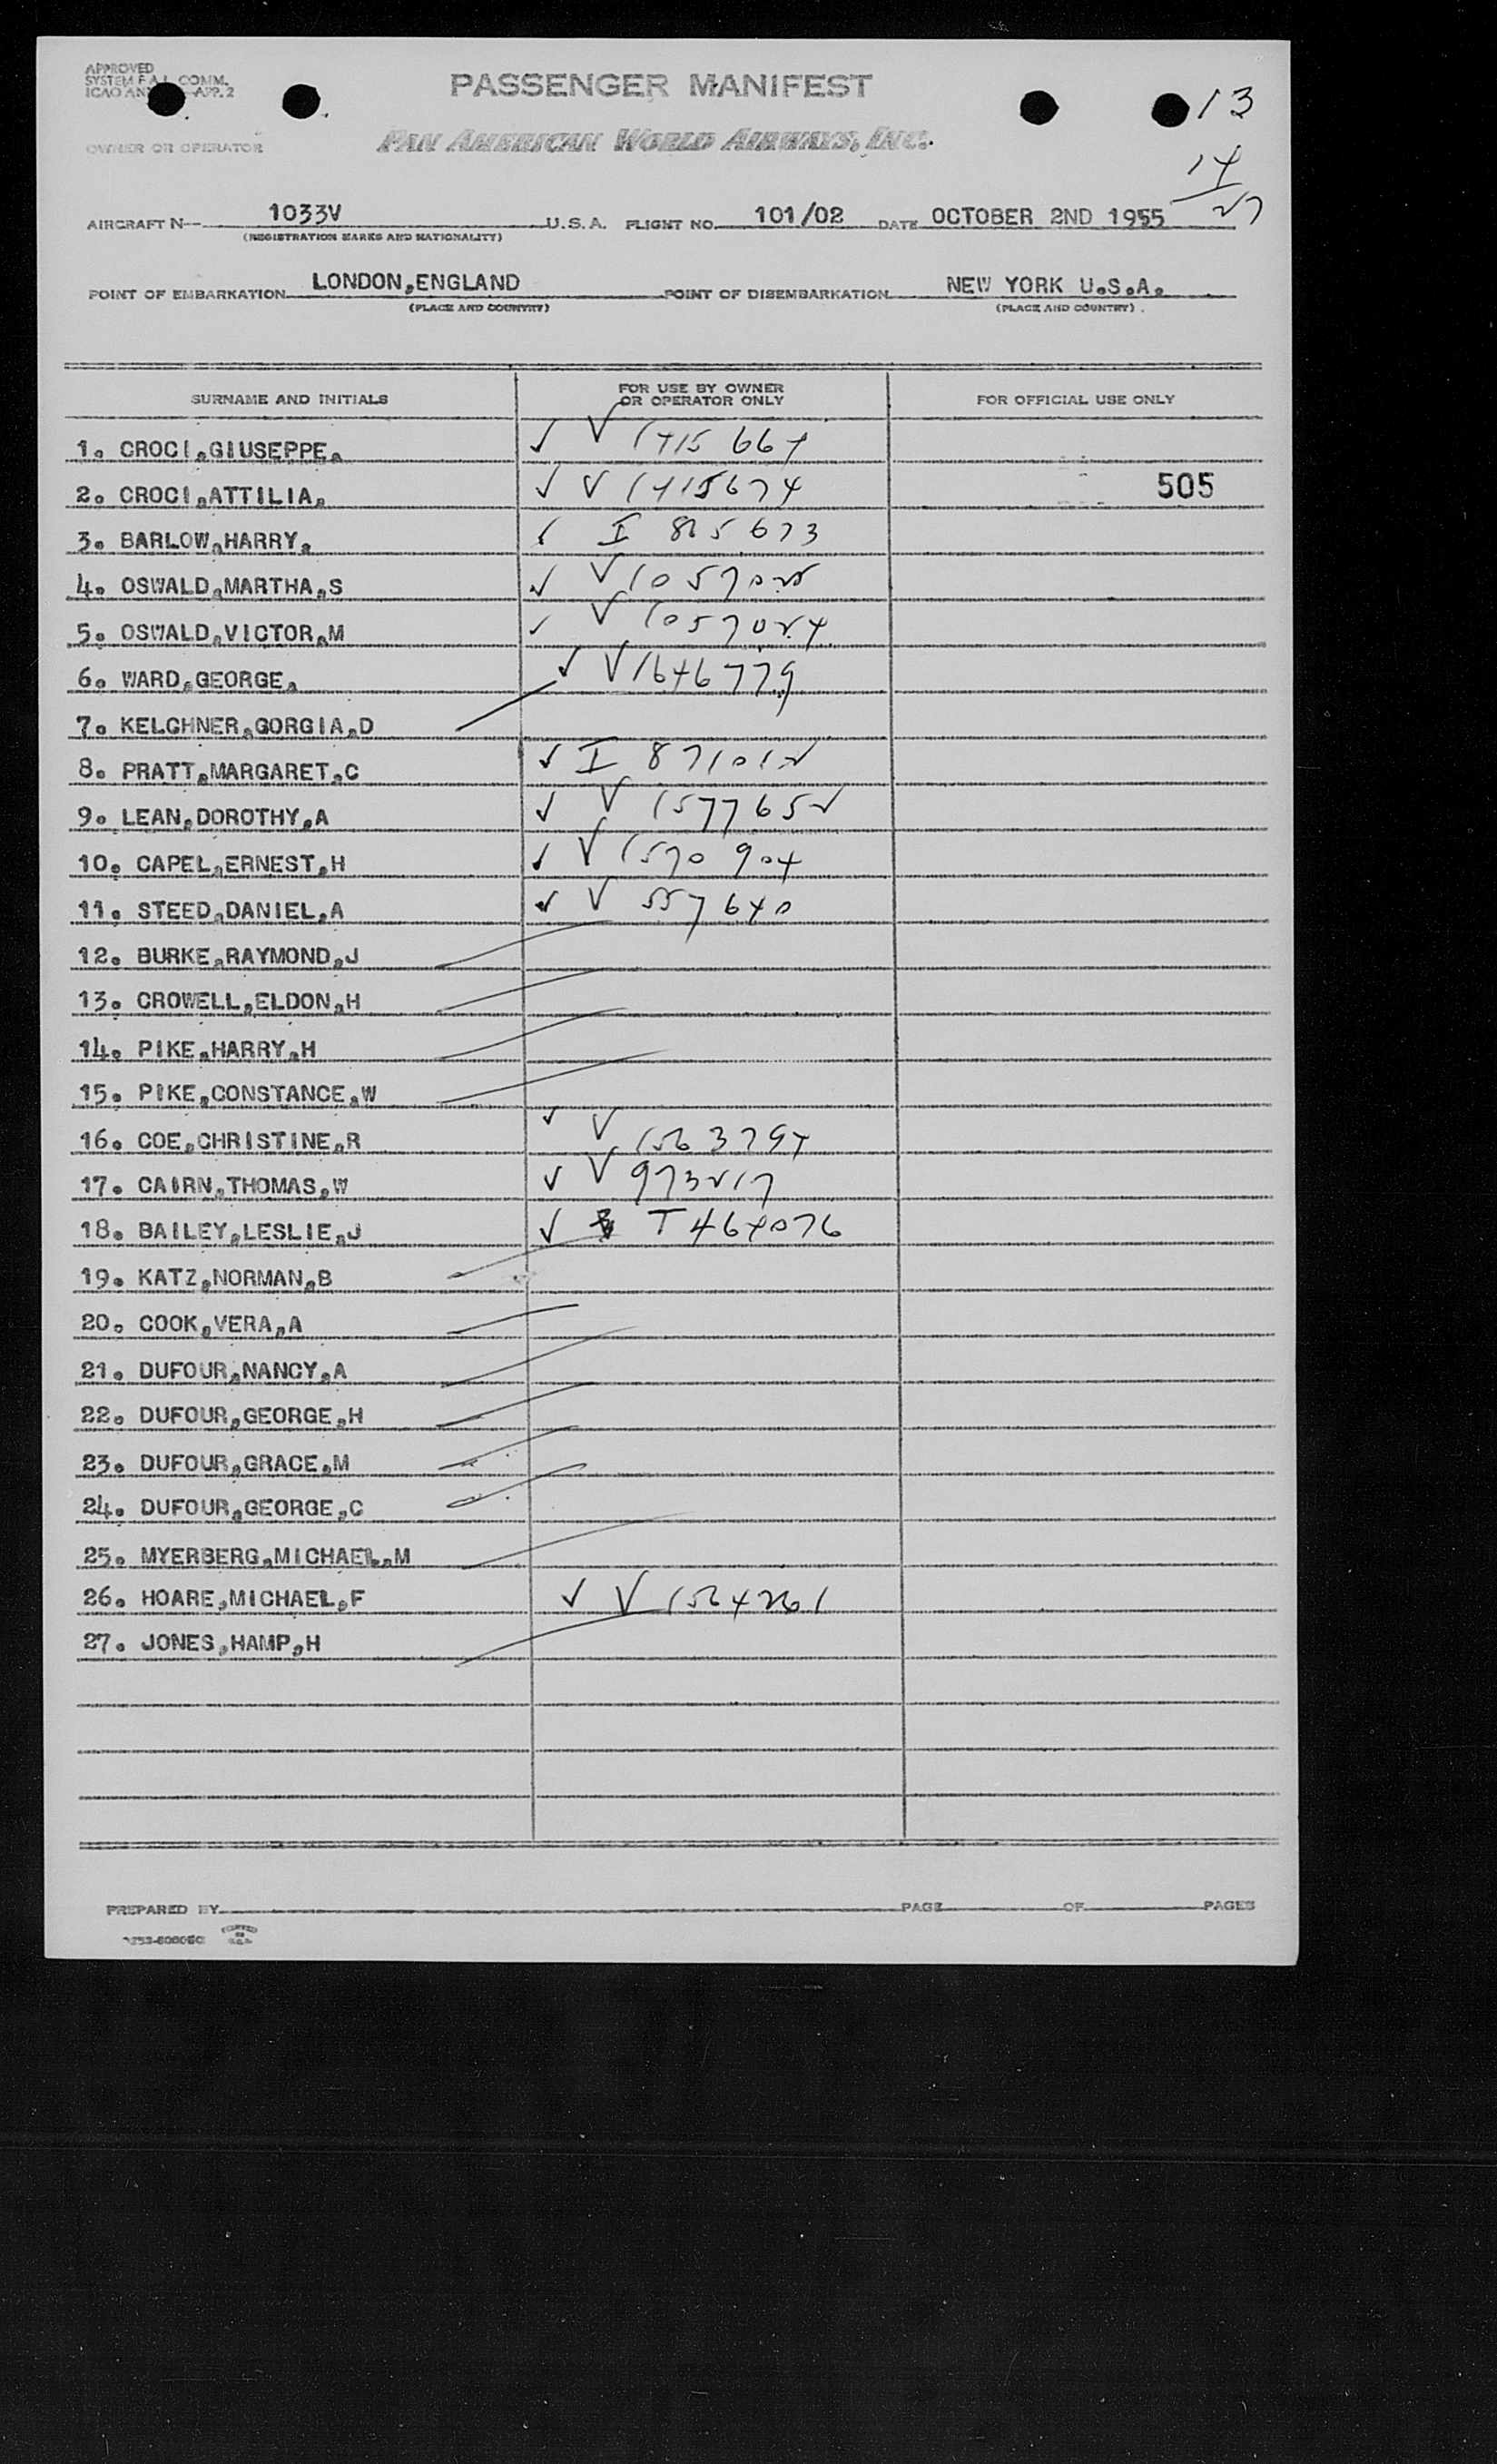 APPROVED
SYSTEM F.A.L. COMM.
ICAO APP. 2
PASSENGER MANIFEST
13
OWNER OR OPERATOR
PAN AMERICAN WORLD AIRWAYS, INC.
14
27
AIRCRAFT N-- 1033V U.S.A. FLIGHT NO. 101/02 DATE OCTOBER 2ND 1955
(REGISTRATION MARKS AND NATIONALITY)
POINT OF EMBARKATION LONDON,ENGLAND POINT OF DISEMBARKATION NEW YORK U.S.A.
(PLACE AND COUNTRY) (PLACE AND COUNTRY)
SURNAME AND INITIALS FOR USE BY OWNER OR OPERATOR ONLY FOR OFFICIAL USE ONLY
1. CROCI,GIUSEPPE, ✓ V 1415 664
2. CROCI,ATTILIA, ✓ V 1415674 505
3. BARLOW,HARRY, ✓ I 825673
4. OSWALD,MARTHA,S ✓ V 1057025
5. OSWALD,VICTOR,M ✓ V 1057024
6. WARD,GEORGE, ✓ V 1646779
7. KELCHNER,GORGIA,D
8. PRATT,MARGARET,C ✓ I 871012
9. LEAN,DOROTHY,A ✓ V 1577652
10. CAPEL,ERNEST,H ✓ V 1570 904
11. STEED,DANIEL,A ✓ V 557640
12. BURKE,RAYMOND,J
13. CROWELL,ELDON,H
14. PIKE,HARRY,H
15. PIKE,CONSTANCE,W
16. COE,CHRISTINE,R ✓ V 1563794
17. CAIRN,THOMAS,W ✓ V 973217
18. BAILEY,LESLIE,J ✓ T 464076
19. KATZ,NORMAN,B
20. COOK,VERA,A
21. DUFOUR,NANCY,A
22. DUFOUR,GEORGE,H
23. DUFOUR,GRACE,M
24. DUFOUR,GEORGE,C
25. MYERBERG,MICHAEL,M
26. HOARE,MICHAEL,F ✓ V 1564261
27. JONES,HAMP,H
PREPARED BY PAGE OF PAGES